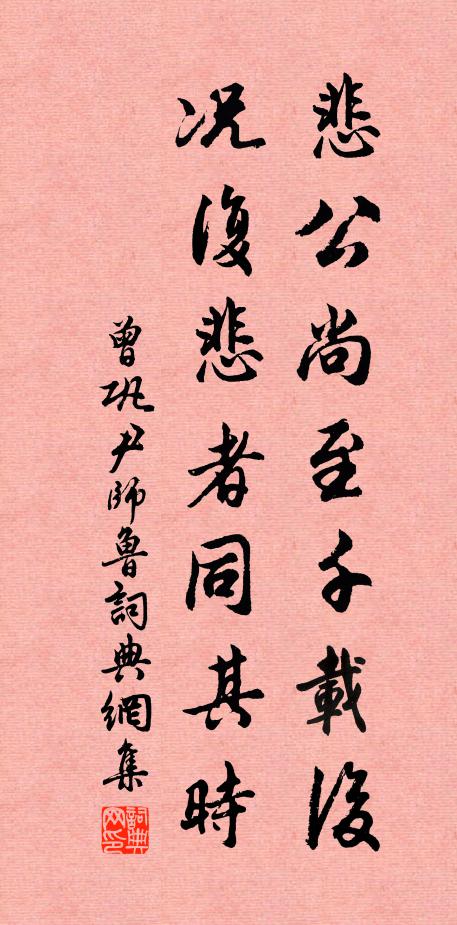 悲公尚至千載後
况復悲者同其時
曾巩尹師魯詞典網集
詞典网印